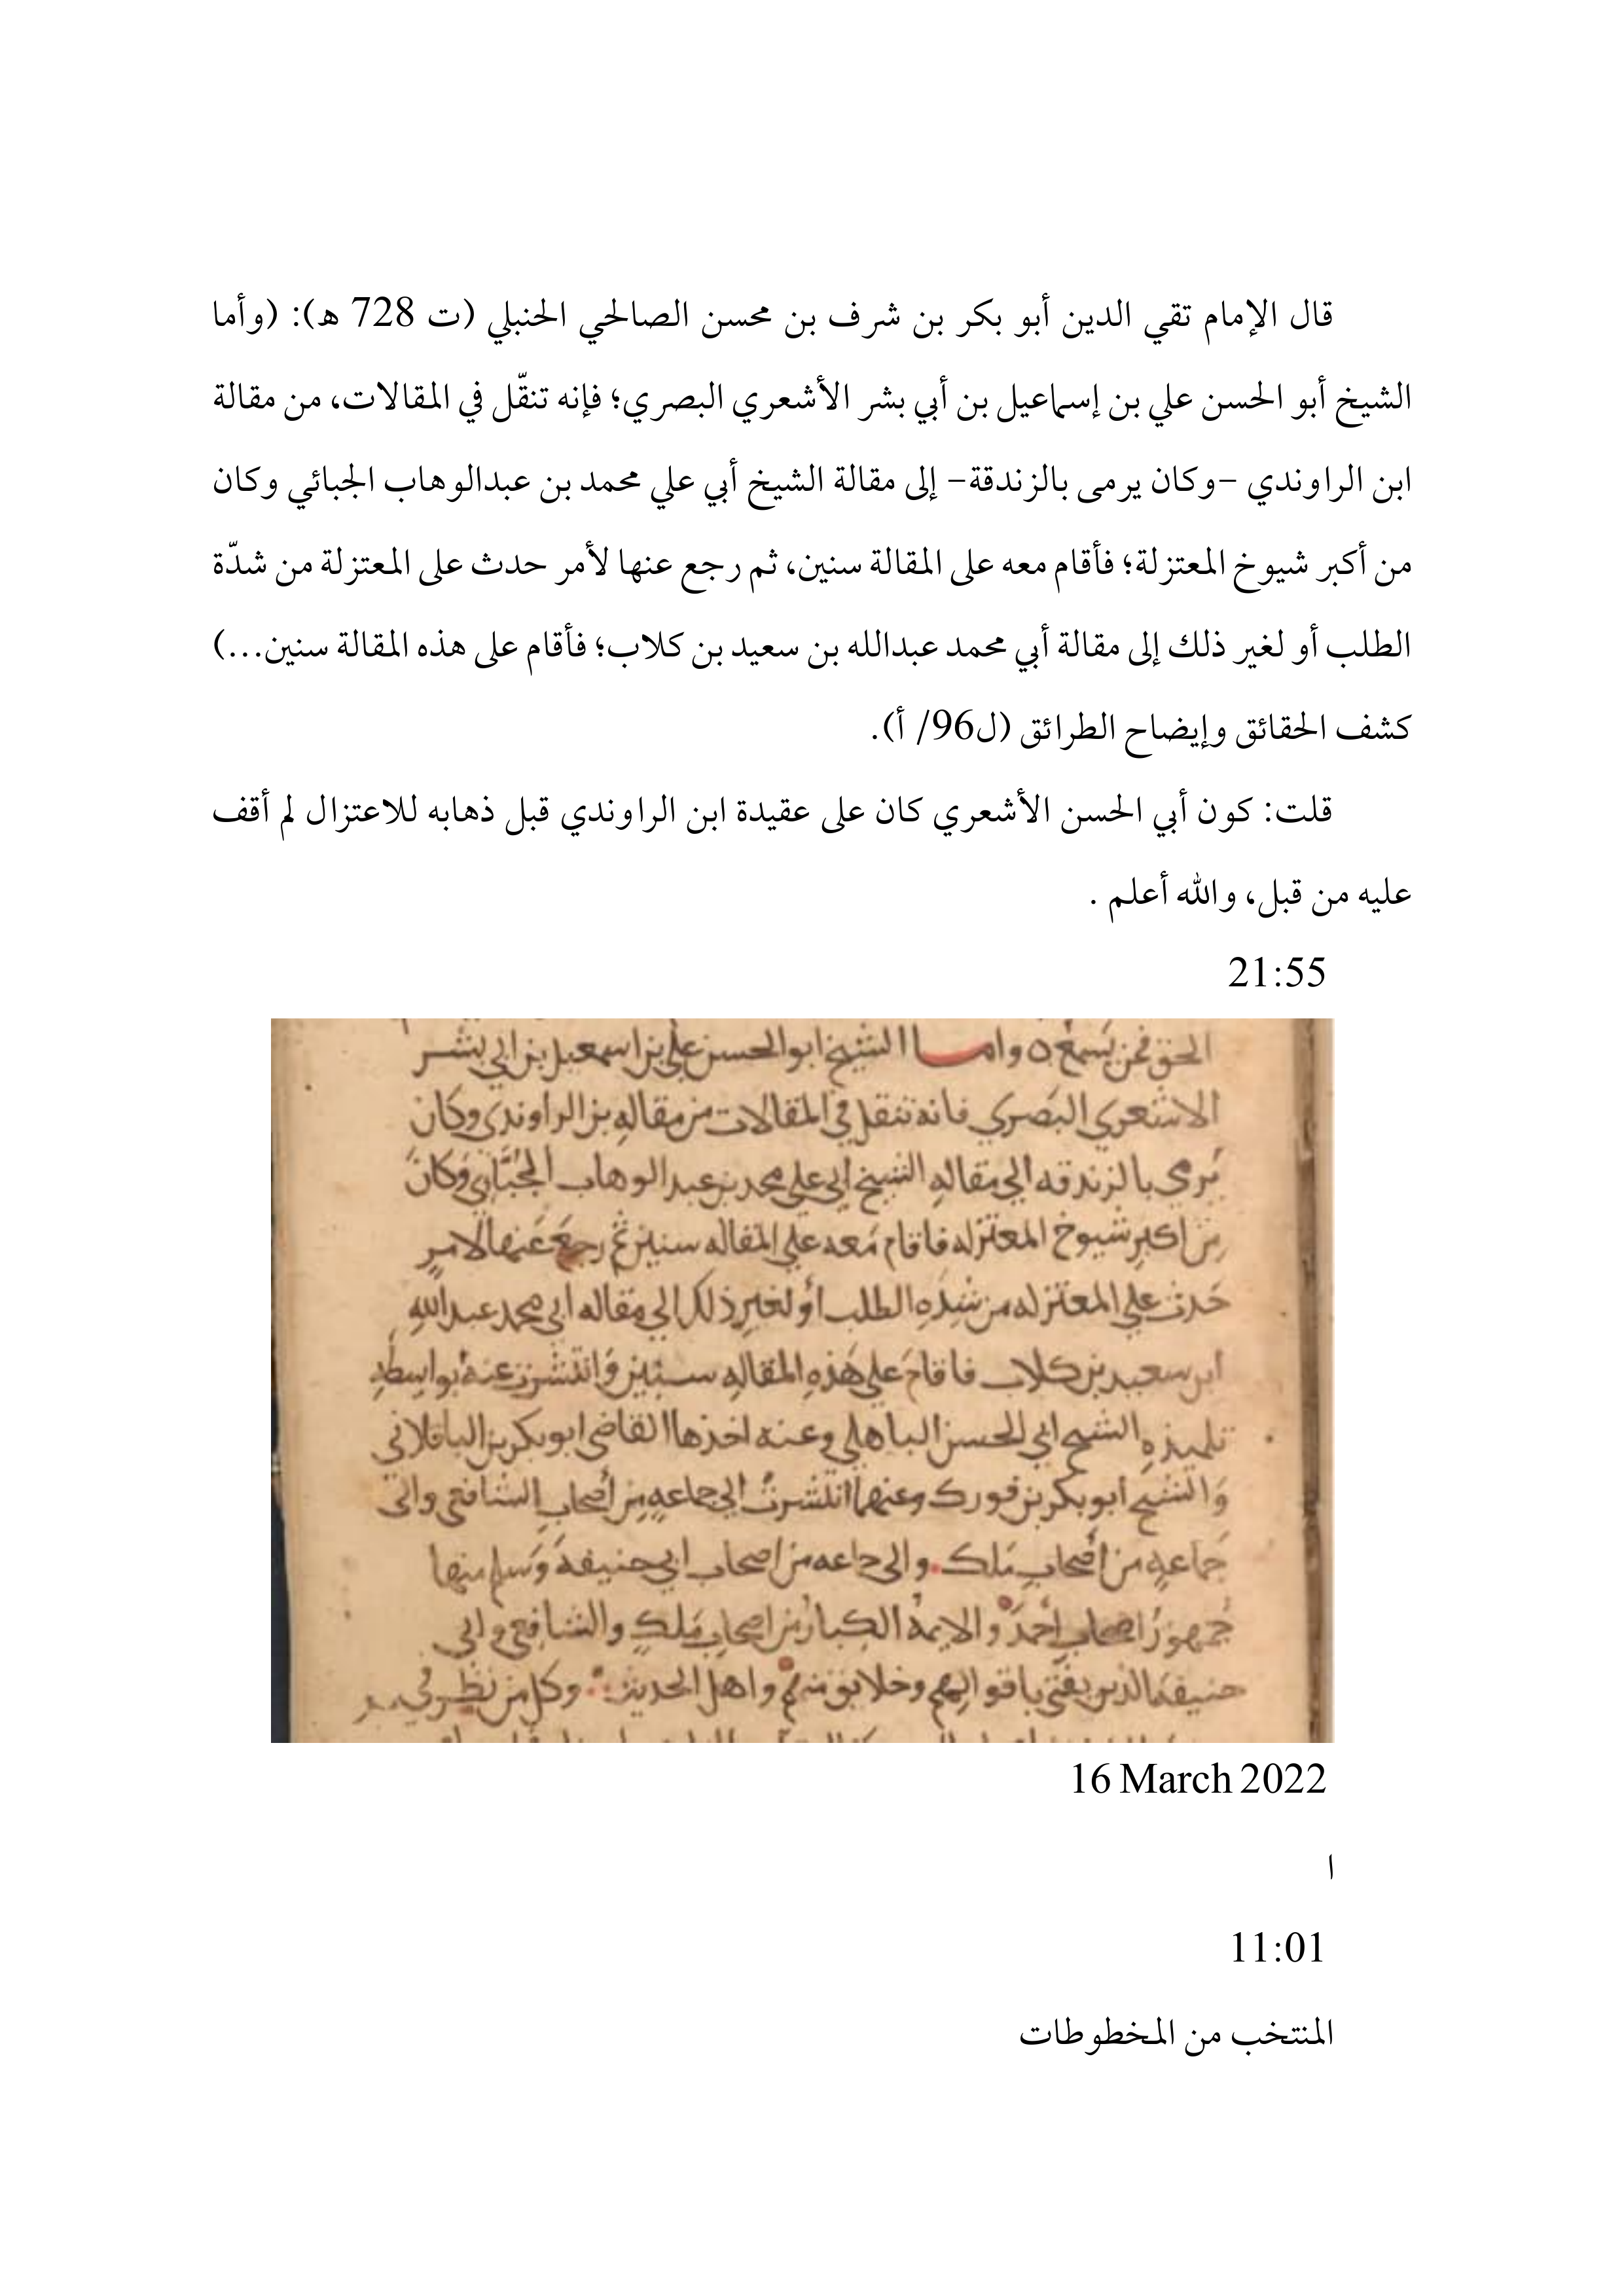 قال الإمام تقي الدين أبو بكر بن شرف بن محسن الصالحي الحنبلي (ت 728 ه): (وأما
الشيخ أبو الحسن علي بن إسماعيل بن أبي بشر الأشعري البصري؛ فإنه تنقّل في المقالات، من مقالة
ابن الراوندي –وكان يرمى بالزندقة– إلى مقالة الشيخ أبي علي محمد بن عبدالوهاب الجبائي وكان
من أكبر شيوخ المعتزلة؛ فأقام معه على المقالة سنين، ثم رجع عنها لأمر حدث على المعتزلة من شدّة
الطلب أو لغير ذلك إلى مقالة أبي محمد عبدالله بن سعيد بن كلاب؛ فأقام على هذه المقالة سنين...)
كشف الحقائق وإيضاح الطرائق (ل96/ أ).
قلت: كون أبي الحسن الأشعري كان على عقيدة ابن الراوندي قبل ذهابه للاعتزال لم أقف
عليه من قبل، والله أعلم .
21:55
الحق فمن يسمع ٥ واما الشيخ ابو الحسن علي بن اسمعيل بن ابي بشر
الاشعري البَصري فانه تنقل في المقالات من مقالهِ بن الراوندي وكان
يُرمي بالزندقه الي مقالهِ الشيخ ابي علي محمد بن عبد الوهاب الجُبَّائي وَكانَ
مِن اكبرِ شيوخ المعتزله فاقام مَعه علي المقاله سنين ثم رجعَ عَنها لامرٍ
حَدث علي المعتزله من شِدهِ الطلب أو لغيرِ ذلك الي مقاله ابي محمد عبد اللهِ
ابن سعيد بن كلاب فاقامَ علي هَذهِ المقالهِ سنين وَانتشرت عنهُ بواسِطهِ
تلميذهِ الشيخ ابي الحسن الباهلي وعنه اخذها القاضي ابو بكر بن الباقلاني
وَالشيخ ابو بكر بن فورك وعنهما انتشرتْ الي جماعهٍ مِن أصحابِ الشافعي والى
جَماعهٍ من أصحابِ مَلك . والى جماعه من اصحاب ابي حنيفهَ وَسلم منها
جمهورُ اصحابِ احمَدَ والايمهُ الكِبارُ من اصحابِ مَلكٍ والشافِعي وابي
حنيفهَ الذين يفتي باقوالهم وخلايق منهم واهل الحديث وكل من نظر في
16 March 2022
ا
11:01
المنتخب من المخطوطات